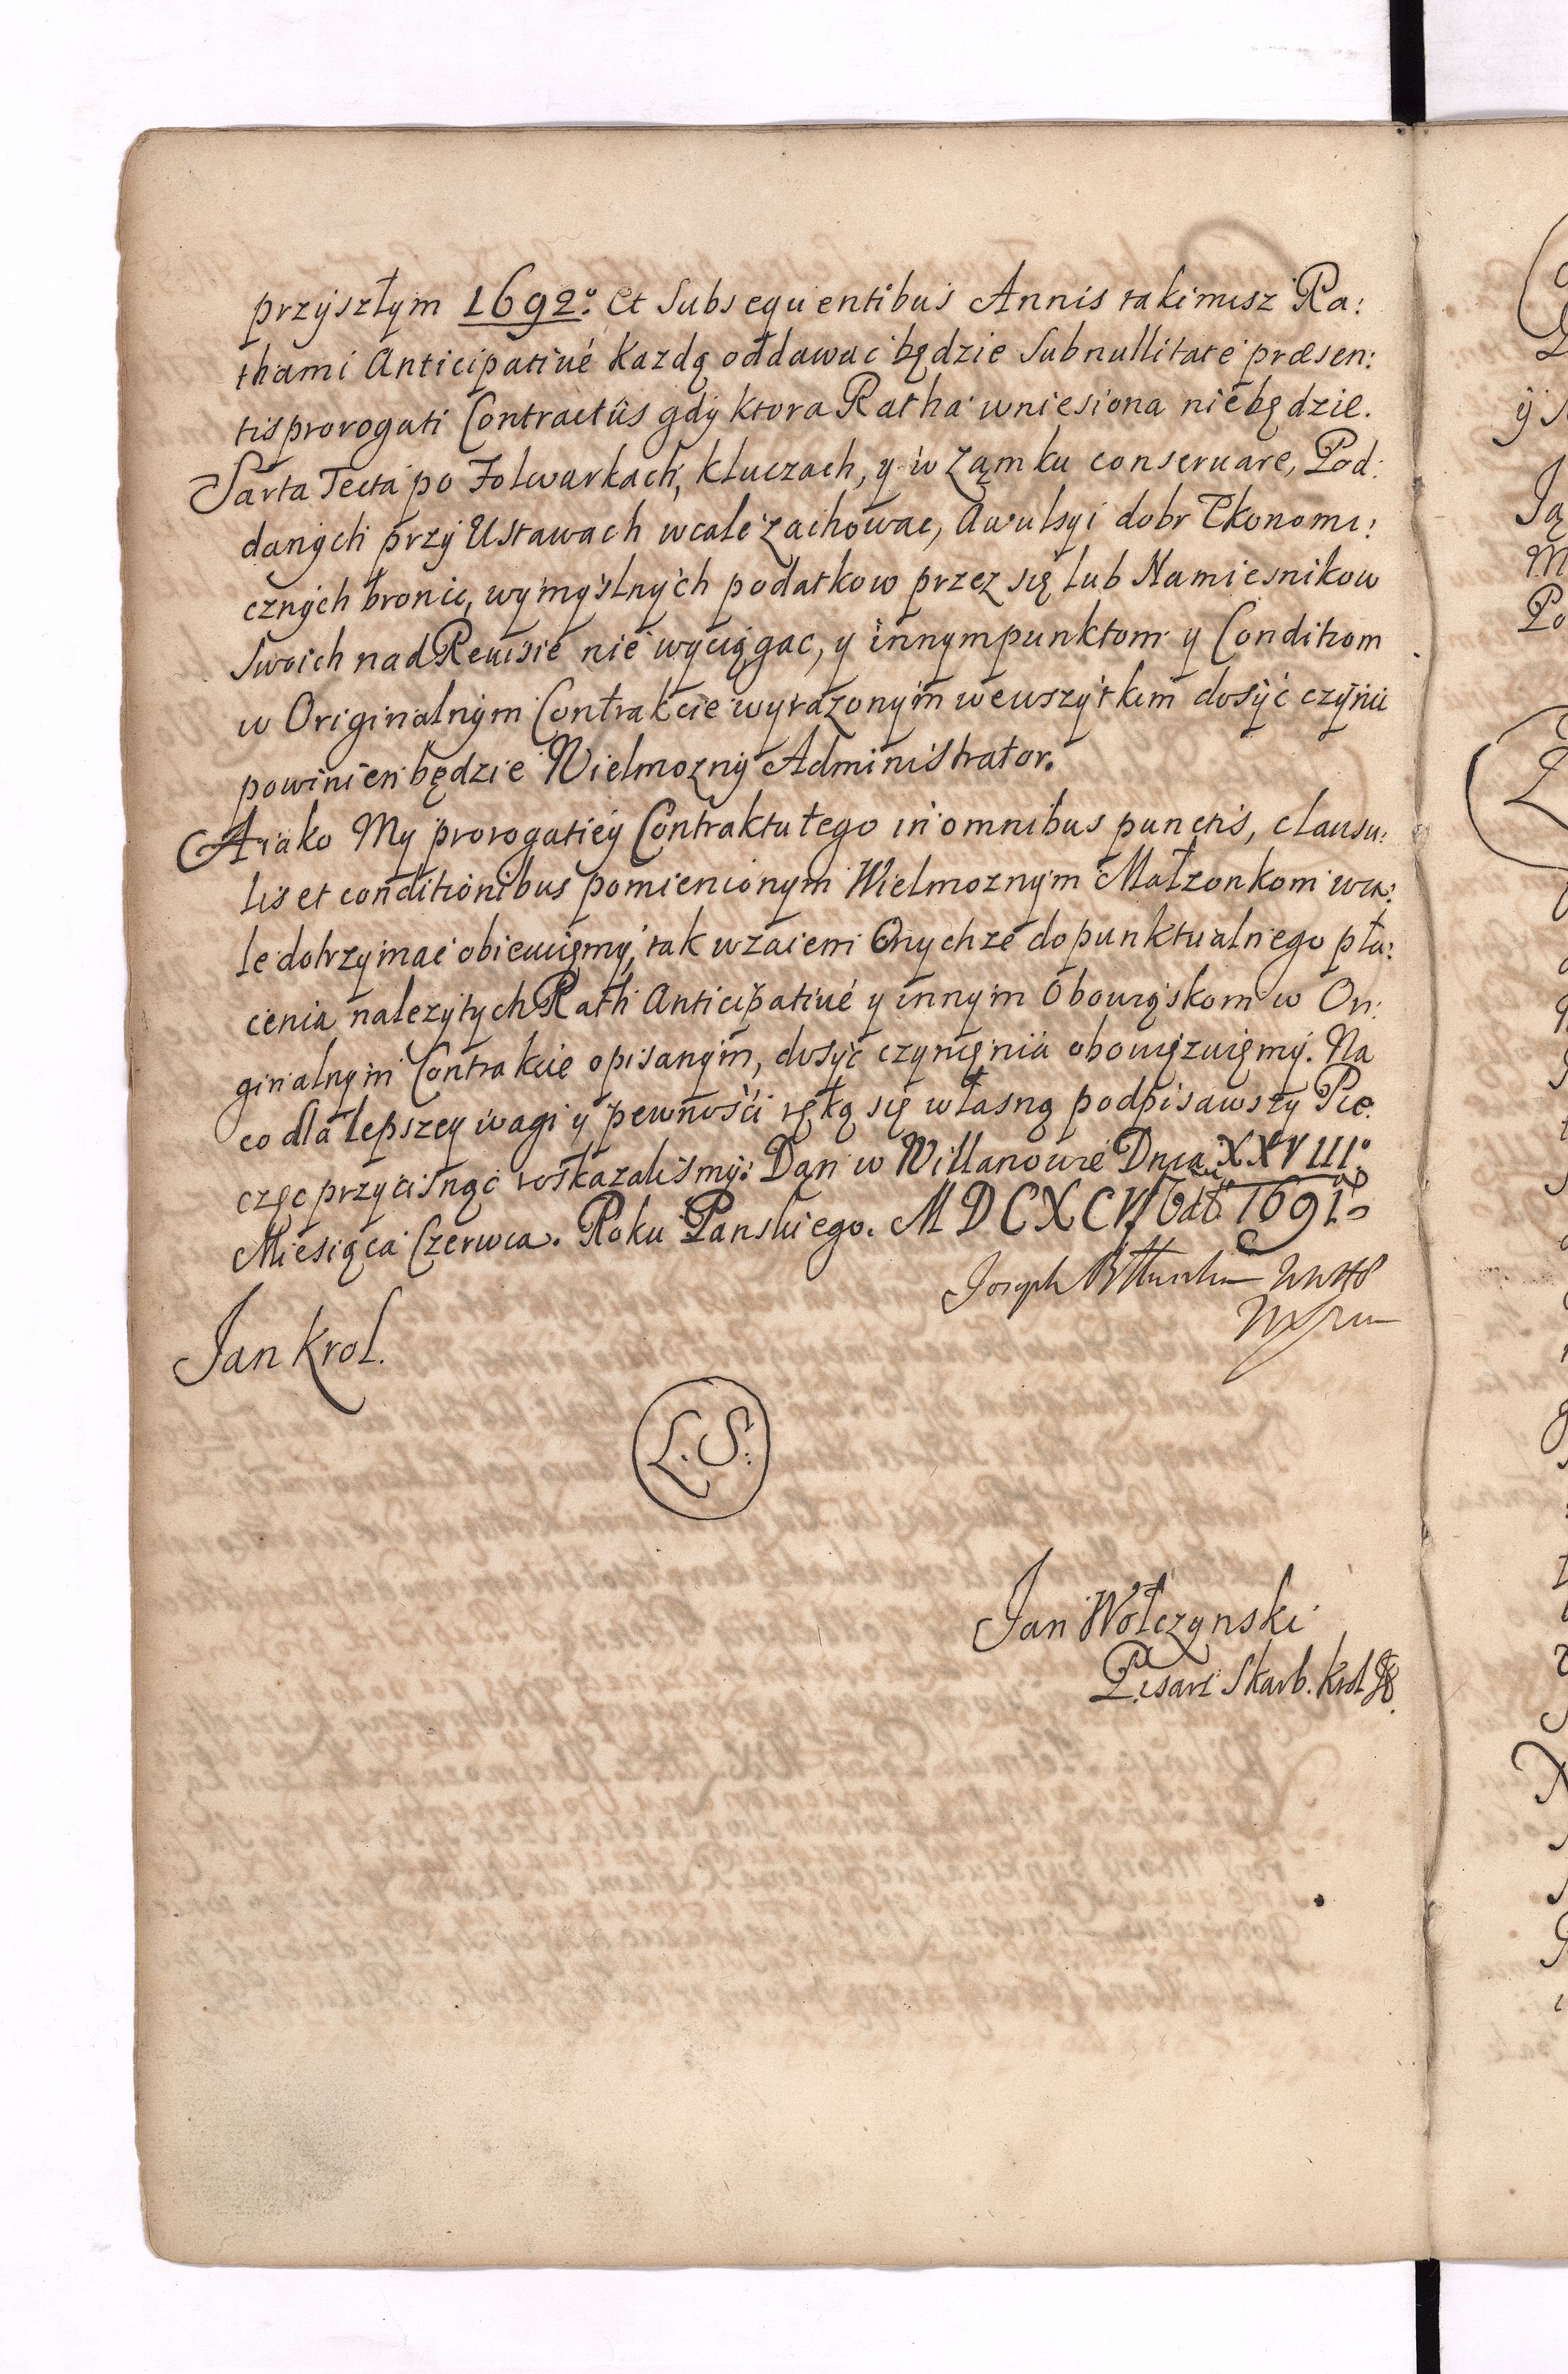 przyszłym 1692º. Et Subsequentibus Annis takimisz Ra:
thami Anticipativé Kazdą oddawac będzie Sub nullitate præsen:
tis prorogati Contractûs gdy ktora Ratha wniesiona niebędzie.
Sarta Tecta po Folwarkach, kluczach, y w Zamku conservare, Pod:
danych przy Ustawach wcale zachowac, Avulsyi dobr Ekonomi:
cznych bronic, wymyslnych podatkow przez się lub Namiesnikow
Swoich nad Rewisie nie wyciągac, y innym punktom y Conditiom
w Originalnym Contrakcie wyrazonym wewszytkim dosyć czynic
powinien będzie Wielmozny Administrator.
A iako My prorogatiey Contraktu tego in omnibus punctis, clausu:
lis et conditionibus pomienionym Wielmoznym Małzonkom wca:
le dotrzymac obiecuięmy, tak wzaiem Onychze do punktualnego pła:
cenia nalezytych Rath Anticipativé y innym Obowiąskom w Ori:
ginalnym Contrakcie opisanym, dosyć czynięnia obowięzuięmy. Na
co dla lepszey wagi y pewności ręką się własną podpisawszy Pie:
częc przycisnąć roskazalismy: Dan w Willanowie Dnia XXVIIIº
Miesiąca Czerwca. Roku Panskiego. MDCXCVI 1691.
Joseph
Jan Krol.
L. S.
Jan Wołczynski
Pisarz Skarb. Krol